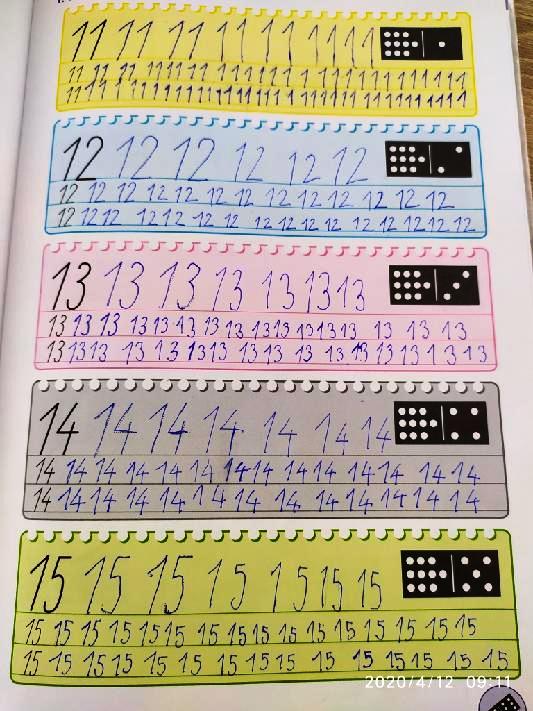 11 11 11 11 11 11 11
11 11 11 11 11 11 11 11 11 11 11 11 11 11 11
11 11 11 11 11 11 11 11 11 11 11 11 11 11 11 11
12 12 12 12 12 12
12 12 12 12 12 12 12 12 12 12 12 12 12
12 12 12 12 12 12 12 12 12 12 12 12 12 12 12
13 13 13 13 13 13 13
13 13 13 13 13 13 13 13 13 13 13 13 13 13 13 13
13 13 13 13 13 13 13 13 13 13 13 13 13 13 13 13
14 14 14 14 14 14 14
14 14 14 14 14 14 14 14 14 14 14 14 14 14
14 14 14 14 14 14 14 14 14 14 14 14 14 14
15 15 15 15 15 15 15
15 15 15 15 15 15 15 15 15 15 15 15 15 15 15
15 15 15 15 15 15 15 15 15 15 15 15 15 15
2020/4/12 09:11